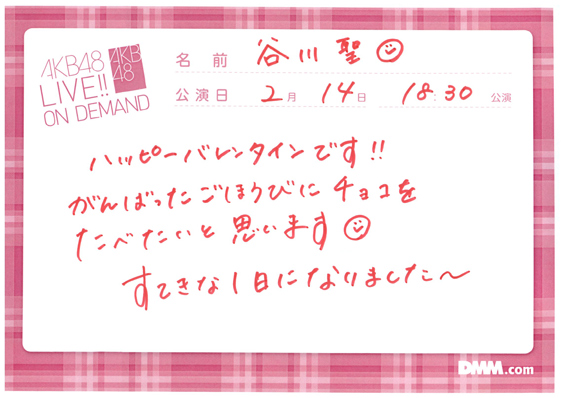 AKB48
LIVE!!
ON DEMAND
AKB
48
名前 谷川聖
公演日 2月 14日 18:30 公演
ハッピーバレンタインです!!
がんばったごほうびにチョコを
たべたいと思います
すてきな1日になりました〜
DMM.com